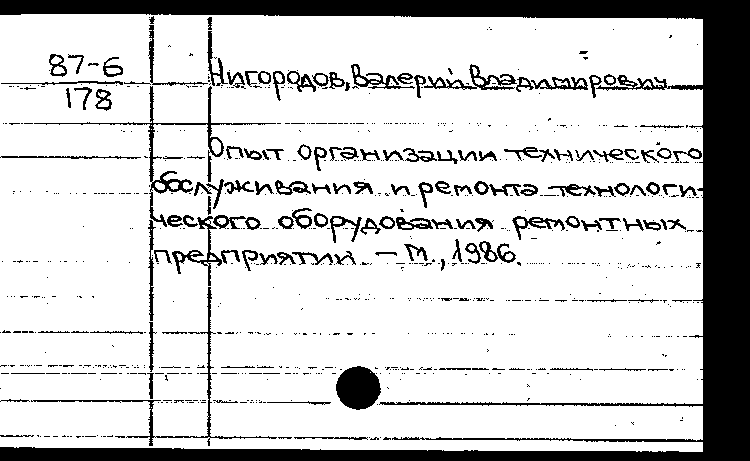 87-6
178
Нигородов, Валерий Владимирович
Опыт организации технического
обслуживания и ремонта технологи-
ческого оборудования ремонтных
предприятий. - М., 1986.